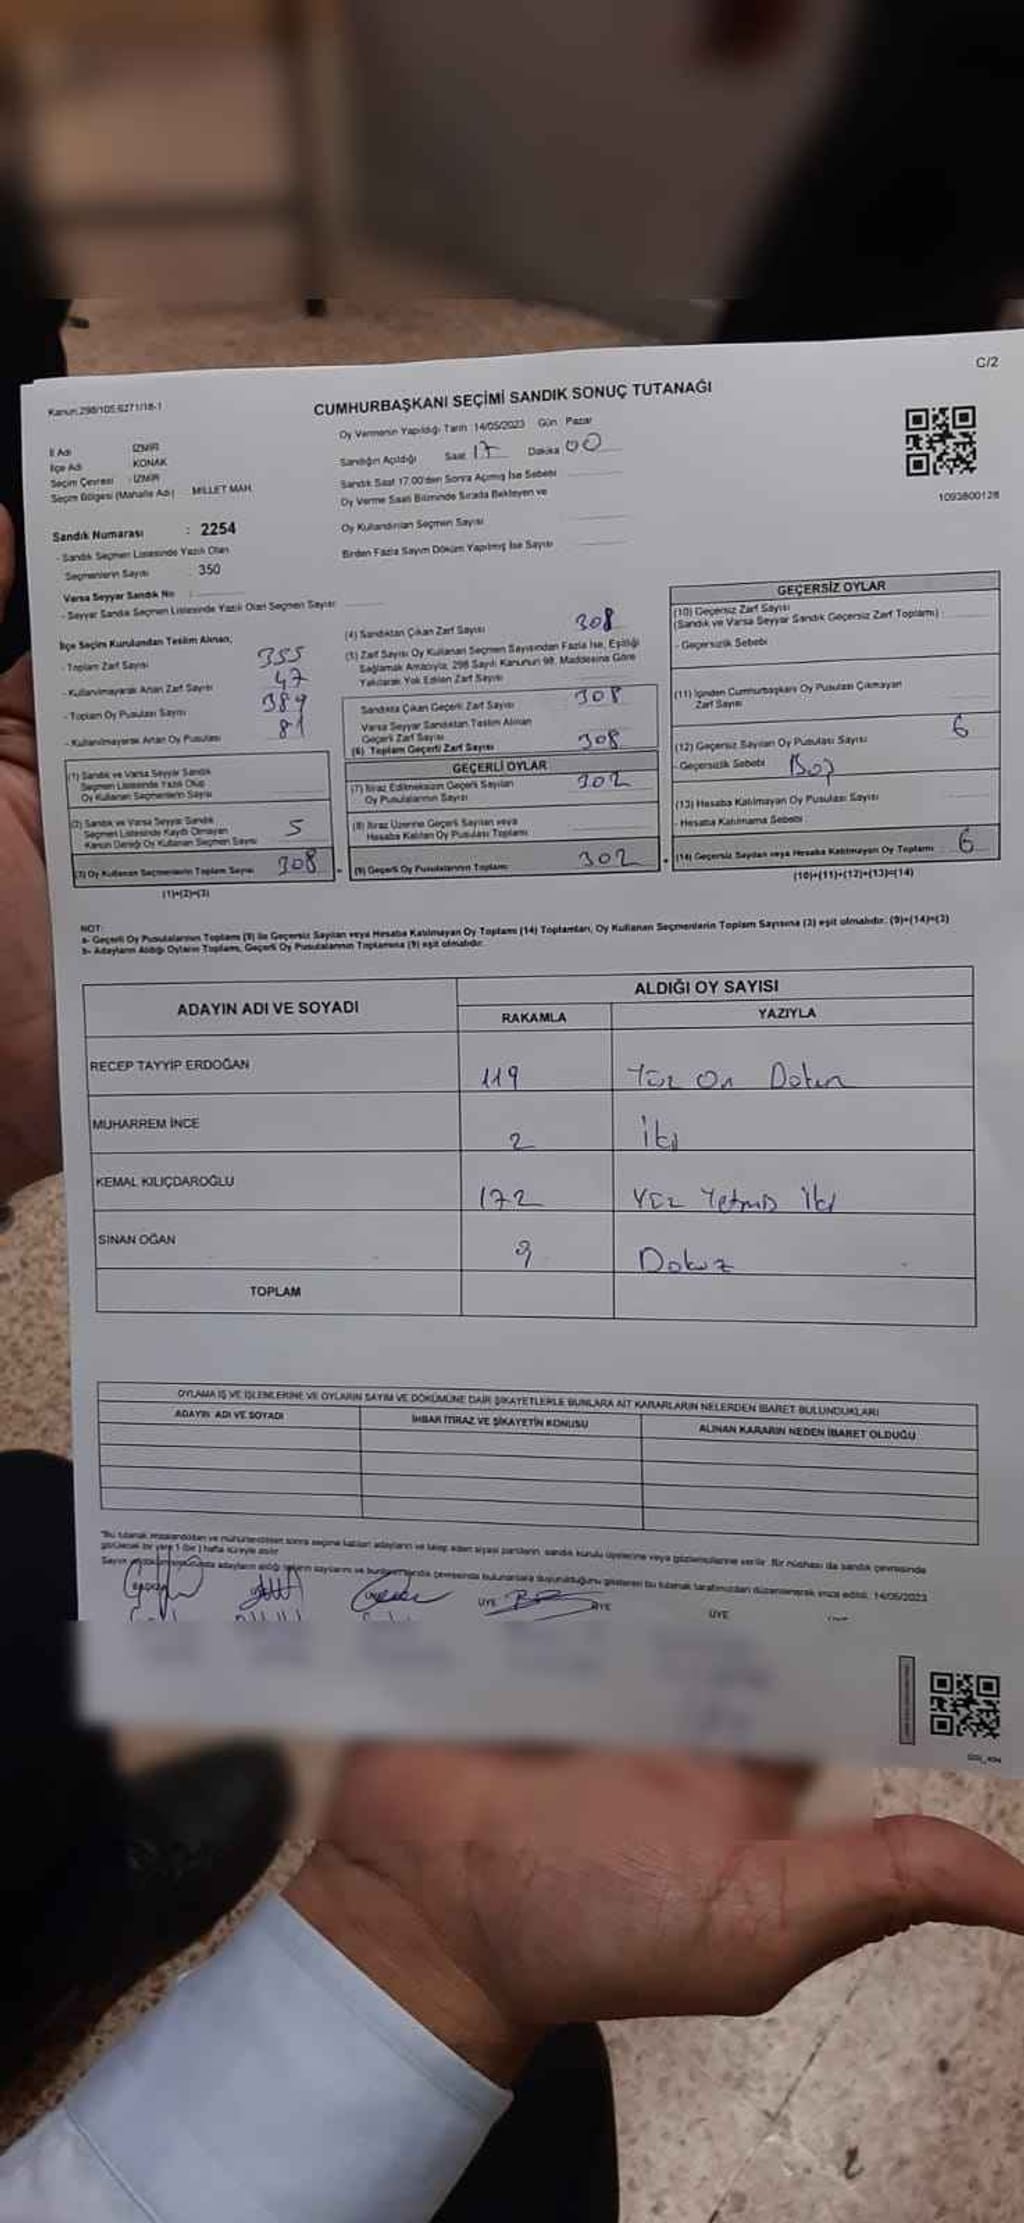 C/2
Kanun:298/105,6271/18-1
CUMHURBAŞKANI SEÇİMİ SANDIK SONUÇ TUTANAĞI
Oy Vermenin Yapıldığı Tarih :14/05/2023 Gün :Pazar
İl Adı : İZMİR
İlçe Adı : KONAK
Seçim Çevresi : İZMİR
Seçim Bölgesi (Mahalle Adı) : MİLLET MAH.
Sandığın Açıldığı Saat 17 Dakika 00
Sandık Saat 17.00'den Sonra Açılmış İse Sebebi
Oy Verme Saati Bitiminde Sırada Bekleyen ve
Oy Kullandırılan Seçmen Sayısı
Birden Fazla Sayım Döküm Yapılmış İse Sayısı
1093800128
Sandık Numarası : 2254
- Sandık Seçmen Listesinde Yazılı Olan
Seçmenlerin Sayısı : 350
Varsa Seyyar Sandık No :
- Seyyar Sandık Seçmen Listesinde Yazılı Olan Seçmen Sayısı:
İlçe Seçim Kurulundan Teslim Alınan;
- Toplam Zarf Sayısı 355
- Kullanılmayarak Artan Zarf Sayısı 47
- Toplam Oy Pusulası Sayısı 389
- Kullanılmayarak Artan Oy Pusulası 81
(1) Sandık ve Varsa Seyyar Sandık
Seçmen Listesinde Yazılı Olup
Oy Kullanan Seçmenlerin Sayısı
(2) Sandık ve Varsa Seyyar Sandık
Seçmen Listesinde Kaydı Olmayan
Kanun Gereği Oy Kullanan Seçmen Sayısı 5
(3) Oy Kullanan Seçmenlerin Toplam Sayısı 308
(1)+(2)=(3)
(4) Sandıktan Çıkan Zarf Sayısı 308
(5) Zarf Sayısı Oy Kullanan Seçmen Sayısından Fazla İse, Eşitliği
Sağlamak Amacıyla, 298 Sayılı Kanunun 98. Maddesine Göre
Yakılarak Yok Edilen Zarf Sayısı
Sandıkta Çıkan Geçerli Zarf Sayısı 308
Varsa Seyyar Sandıktan Teslim Alınan
Geçerli Zarf Sayısı
(6) Toplam Geçerli Zarf Sayısı 308
GEÇERLİ OYLAR
(7) İtiraz Edilmeksizin Geçerli Sayılan
Oy Pusulalarının Sayısı 302
(8) İtiraz Üzerine Geçerli Sayılan veya
Hesaba Katılan Oy Pusulaları Toplamı
(9) Geçerli Oy Pusulalarının Toplamı 302
GEÇERSİZ OYLAR
(10) Geçersiz Zarf Sayısı
(Sandık ve Varsa Seyyar Sandık Geçersiz Zarf Toplamı)
- Geçersizlik Sebebi
(11) İçinden Cumhurbaşkanı Oy Pusulası Çıkmayan
Zarf Sayısı
(12) Geçersiz Sayılan Oy Pusulası Sayısı 6
- Geçersizlik Sebebi Boş
(13) Hesaba Katılmayan Oy Pusulası Sayısı
- Hesaba Katılmama Sebebi
(14) Geçersiz Sayılan veya Hesaba Katılmayan Oy Toplamı 6
(10)+(11)+(12)+(13)=(14)
NOT:
a- Geçerli Oy Pusulalarının Toplamı (9) ile Geçersiz Sayılan veya Hesaba Katılmayan Oy Toplamı (14) Toplamları, Oy Kullanan Seçmenlerin Toplam Sayısına (3) eşit olmalıdır. (9)+(14)=(3)
b- Adayların Aldığı Oyların Toplamı, Geçerli Oy Pusulalarının Toplamına (9) eşit olmalıdır.
ADAYIN ADI VE SOYADI
ALDIĞI OY SAYISI
RAKAMLA YAZIYLA
RECEP TAYYİP ERDOĞAN 119 Yüz On Dokuz
MUHARREM İNCE 2 İki
KEMAL KILIÇDAROĞLU 172 Yüz Yetmiş İki
SİNAN OĞAN 9 Dokuz
TOPLAM
OYLAMA İŞ VE İŞLEMLERİNE VE OYLARIN SAYIM VE DÖKÜMÜNE DAİR ŞİKAYETLERLE BUNLARA AİT KARARLARIN NELERDEN İBARET BULUNDUKLARI
ADAYIN ADI VE SOYADI
İHBAR İTİRAZ VE ŞİKAYETİN KONUSU
ALINAN KARARIN NEDEN İBARET OLDUĞU
ÜYE
ÜYE
ÜYE